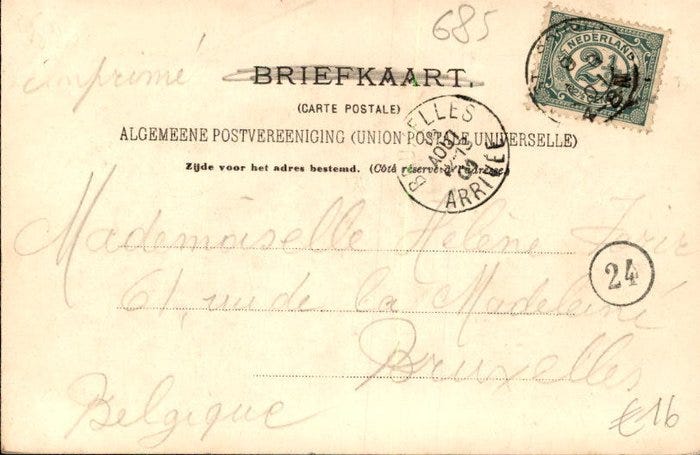 685
NEDERLAND
2½
imprimé
BRIEFKAART.
(CARTE POSTALE)
ALGEMEENE POSTVEREENIGING (UNION POSTALE UNIVERSELLE)
Zijde voor het adres bestemd. (Côté réservé à l'adresse)
BRUXELLES
AOUT
ARRIVÉE
Mademoiselle Hélène
24
61, rue de la Madeleine
Bruxelles
Belgique
€16